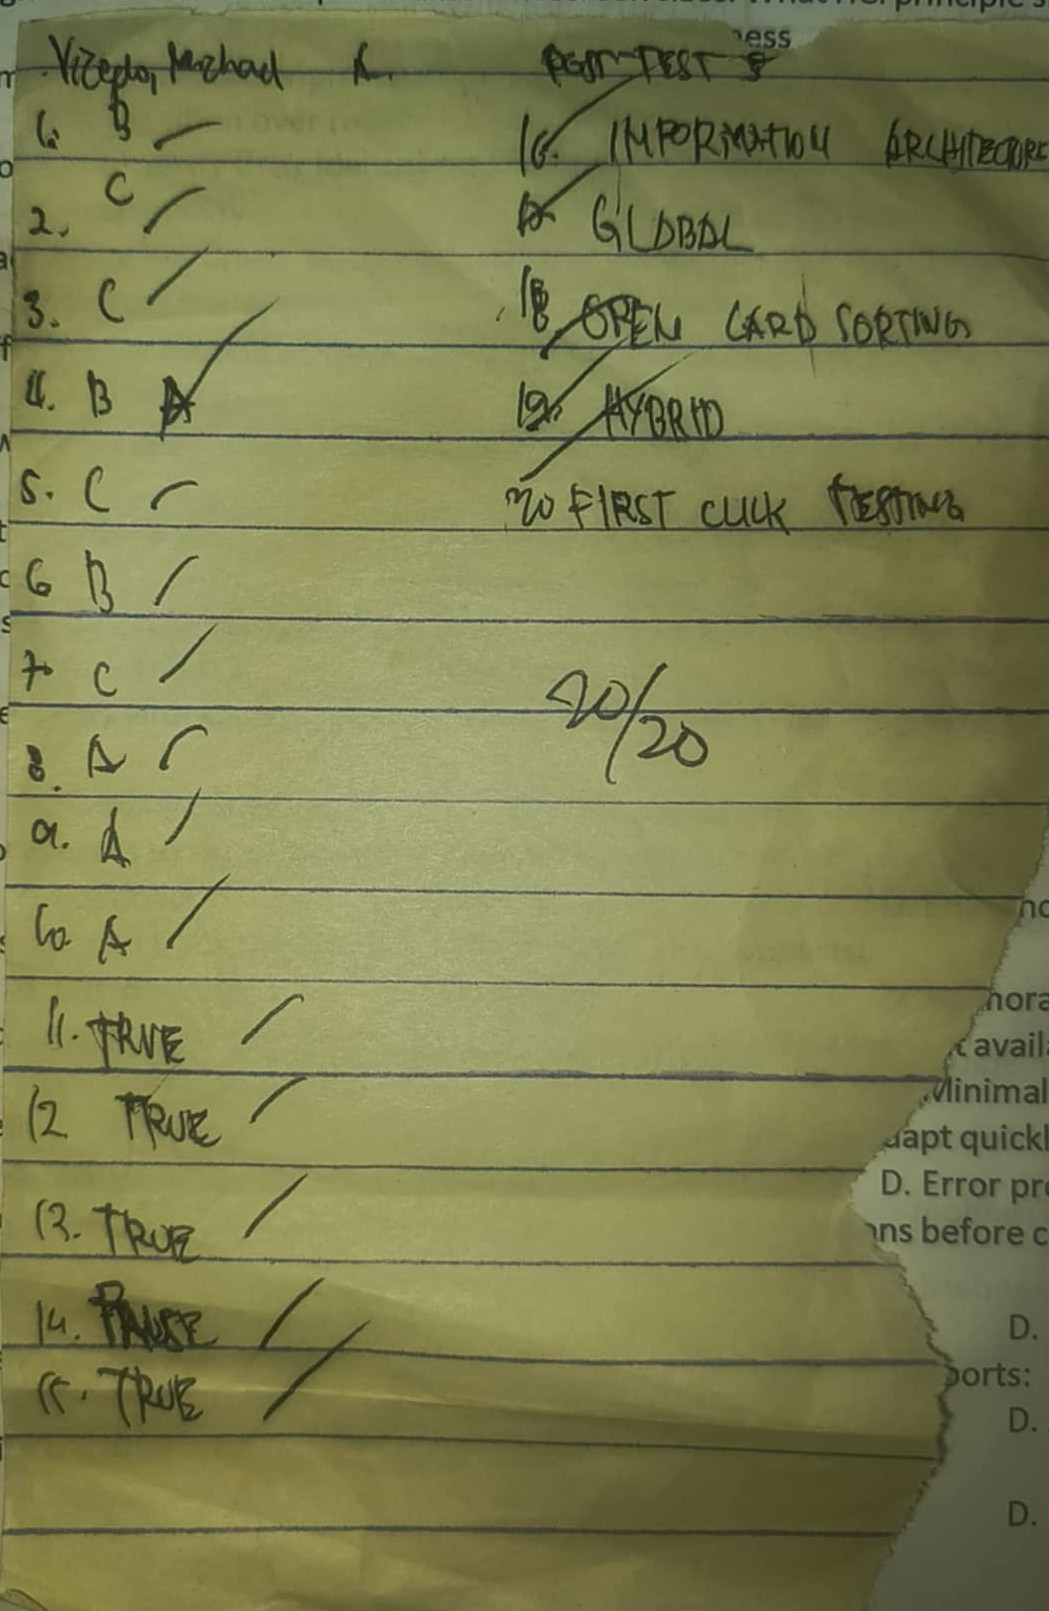 ness
Michael A. POST TEST
1. B
2. C
3. C
4. B A
5. C
6 B
7. C
8. A
9. A
10. A
11. TRUE
12. TRUE
13. TRUE
14. FALSE
15. TRUE
16. INFORMATION ARCHITECTURE
17. GLOBAL
18. OPEN CARD SORTING
19. HYBRID
20 FIRST CLICK TESTING
20/20
availa
Minimal
apt quickl
D. Error pre
ns before c
D.
ports:
D.
D.